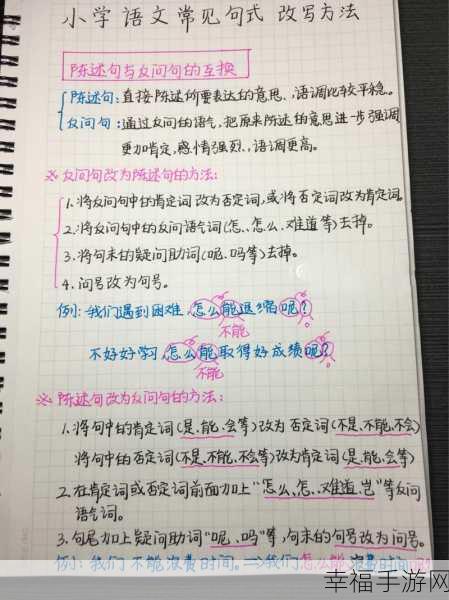 小学语文常见句式 改写方法
陈述句与反问句的互换
陈述句:直接陈述所要表达的意思、语调比较平稳。
反问句:通过反问的语气,把原来陈述的意思进一步强调
更加肯定,感情强烈、语调更高。
※ 反问句改为陈述句的方法:
1.将反问句中的肯定词改为否定词,或将否定词改为肯定词
2.将反问句中的反问语气词(怎、怎么、难道等)去掉。
3.将句末的疑问助词(呢、吗等)去掉。
4.问号改为句号。
例:我们遇到困难,怎么能退缩呢?
不能
不好好学习,怎么能取得好成绩呢?
不能
※ 陈述句改为反问句的方法:
1.将句中的肯定词(是、能、会等)改为否定词(不是、不能、不会)
将句中的否定词(不是、不能、不会等)改为肯定词(是、能、会等)
2.在肯定词或否定词前面加上"怎么、怎、难道、岂"等反问
语气词。
3.句尾加上疑问助词"呢、吗"等,句末的句号改为问号。
例:我们不能浪费时间。⇒我们怎么能浪费时间呢?
幸福手游网